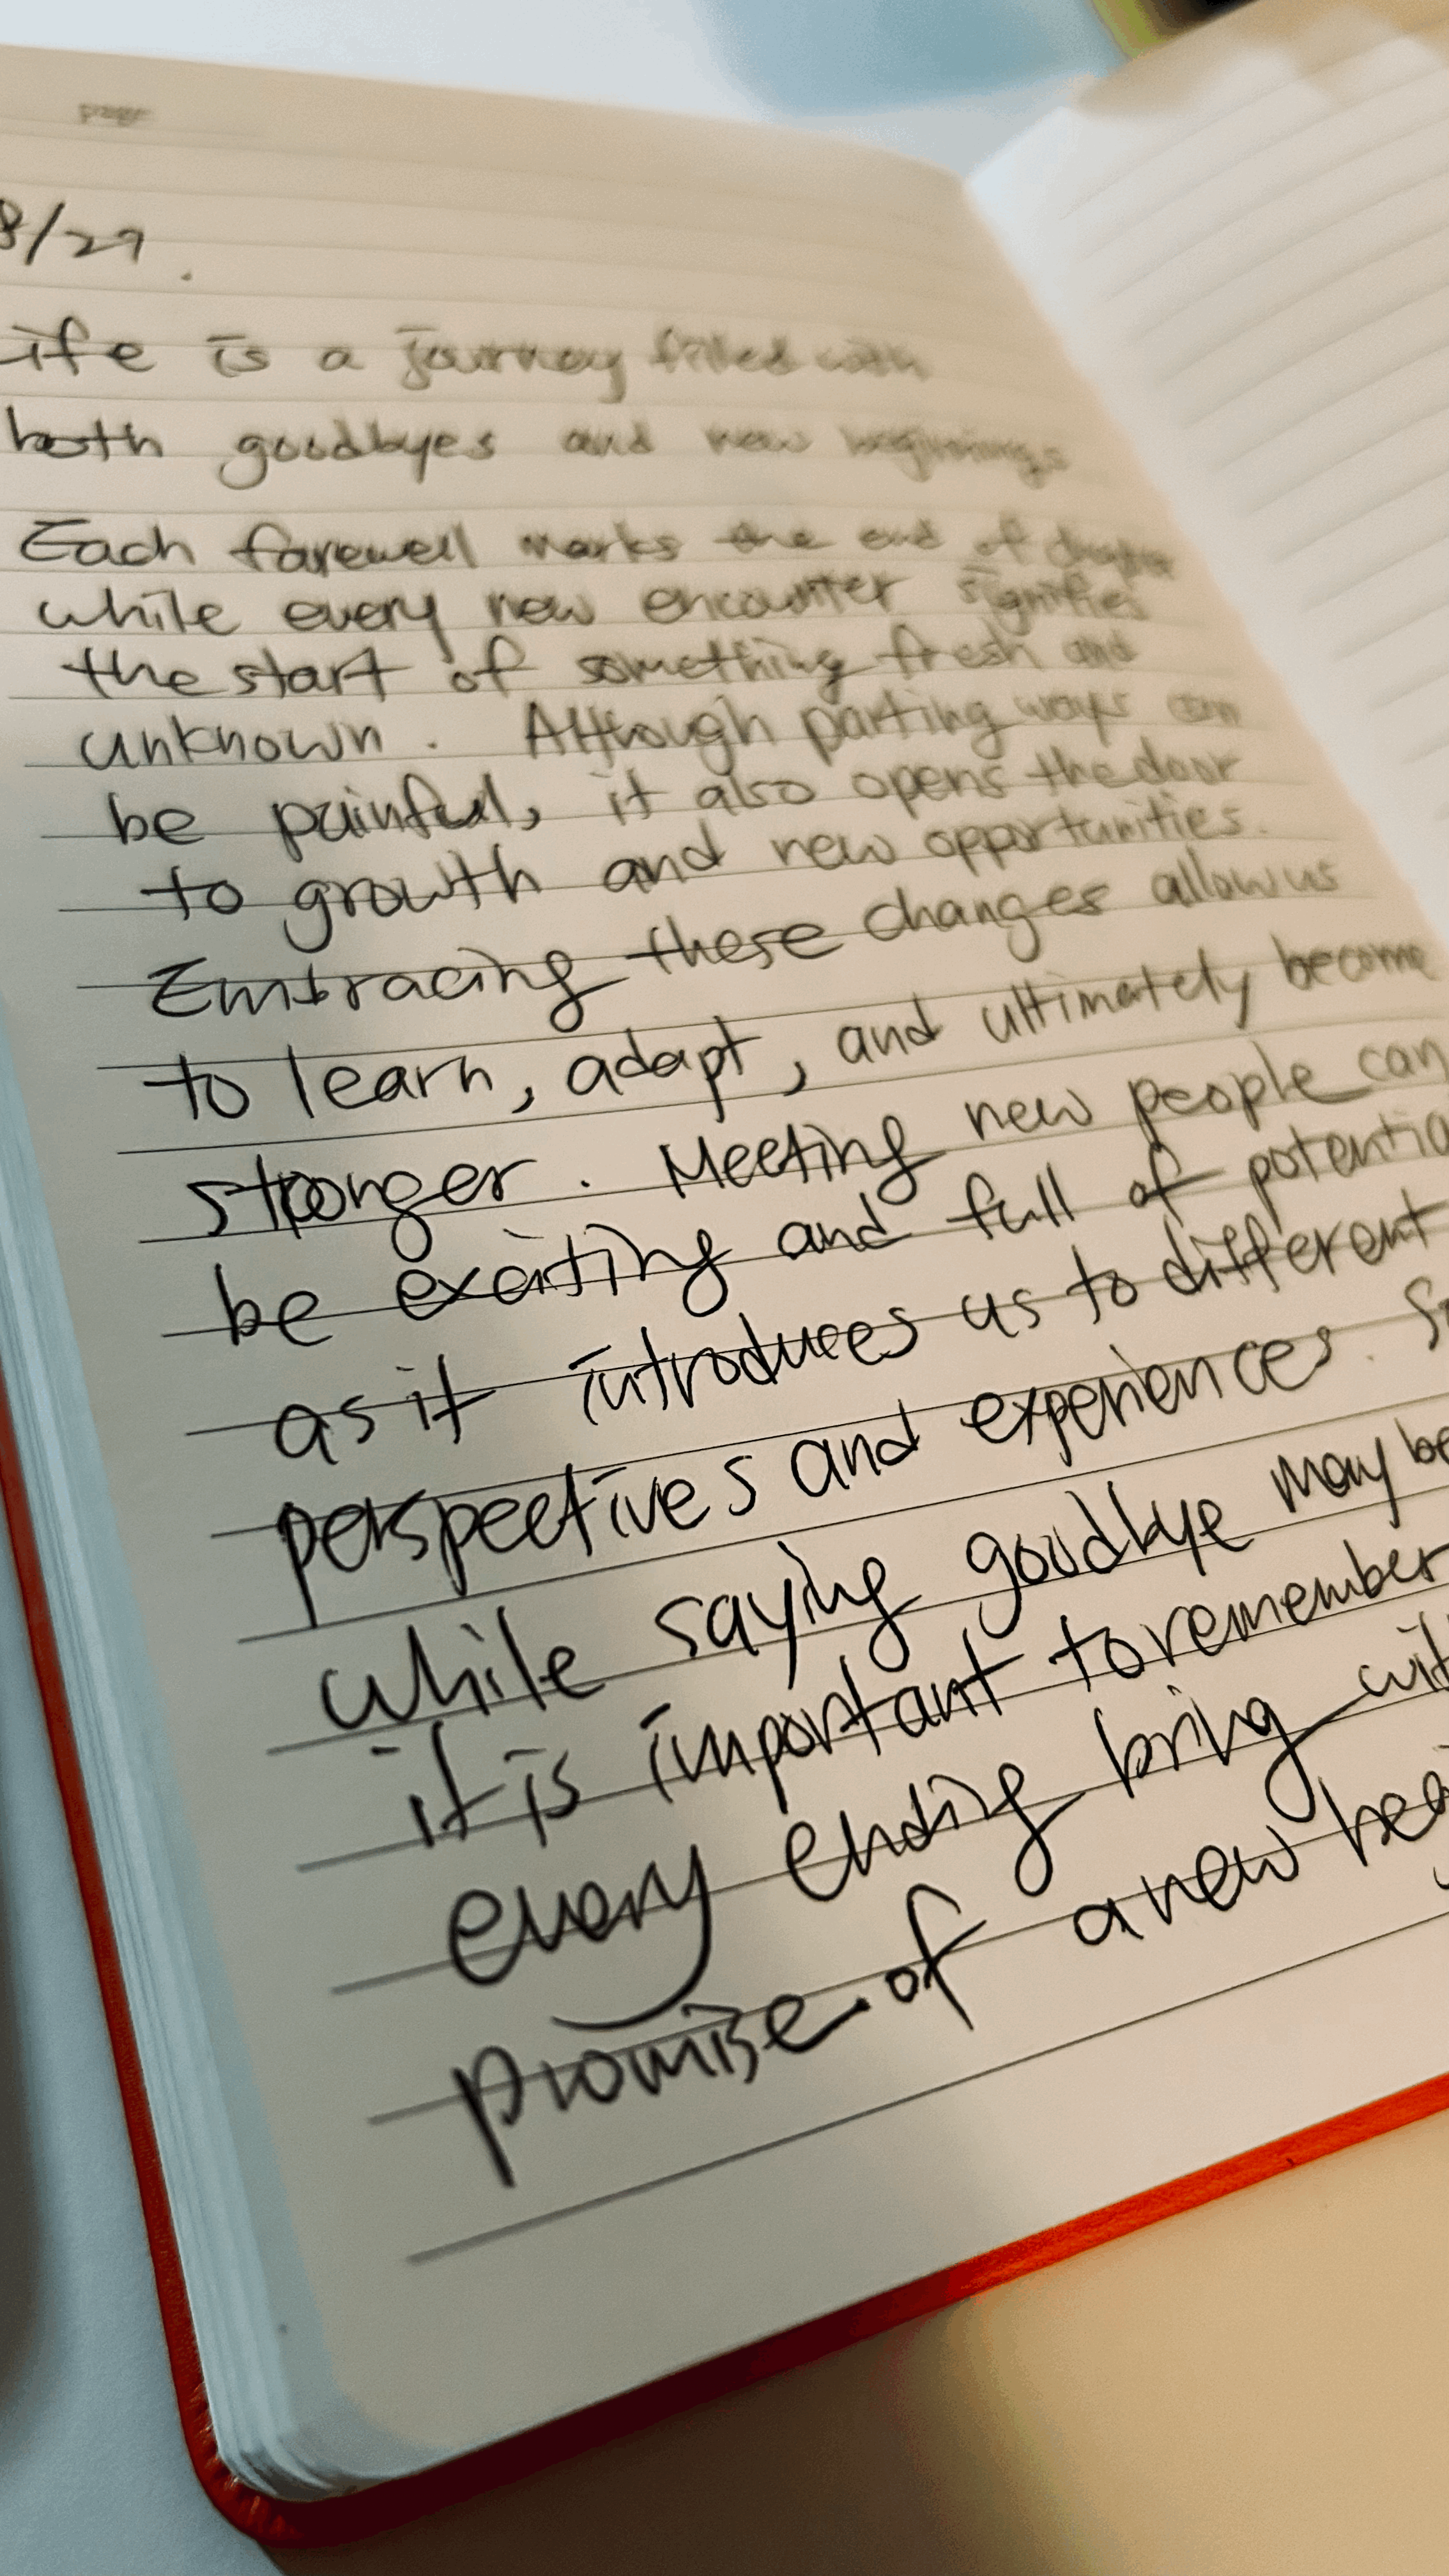 page
8/27.
ife is a journey filled with
both goodbyes and new beginnings
Each farewell marks the end of chapter
while every new encounter signifies
the start of something fresh and
unknown. Although parting ways can
be painful, it also opens the door
to growth and new opportunities.
Embracing these changes allow us
to learn, adapt, and ultimately become
stronger. Meeting new people can
be exciting and full of potentia
as it introduces us to different
perspectives and experiences. S
while saying goodbye may be
it is important to remember
every ending bring wit
promise of a new beg